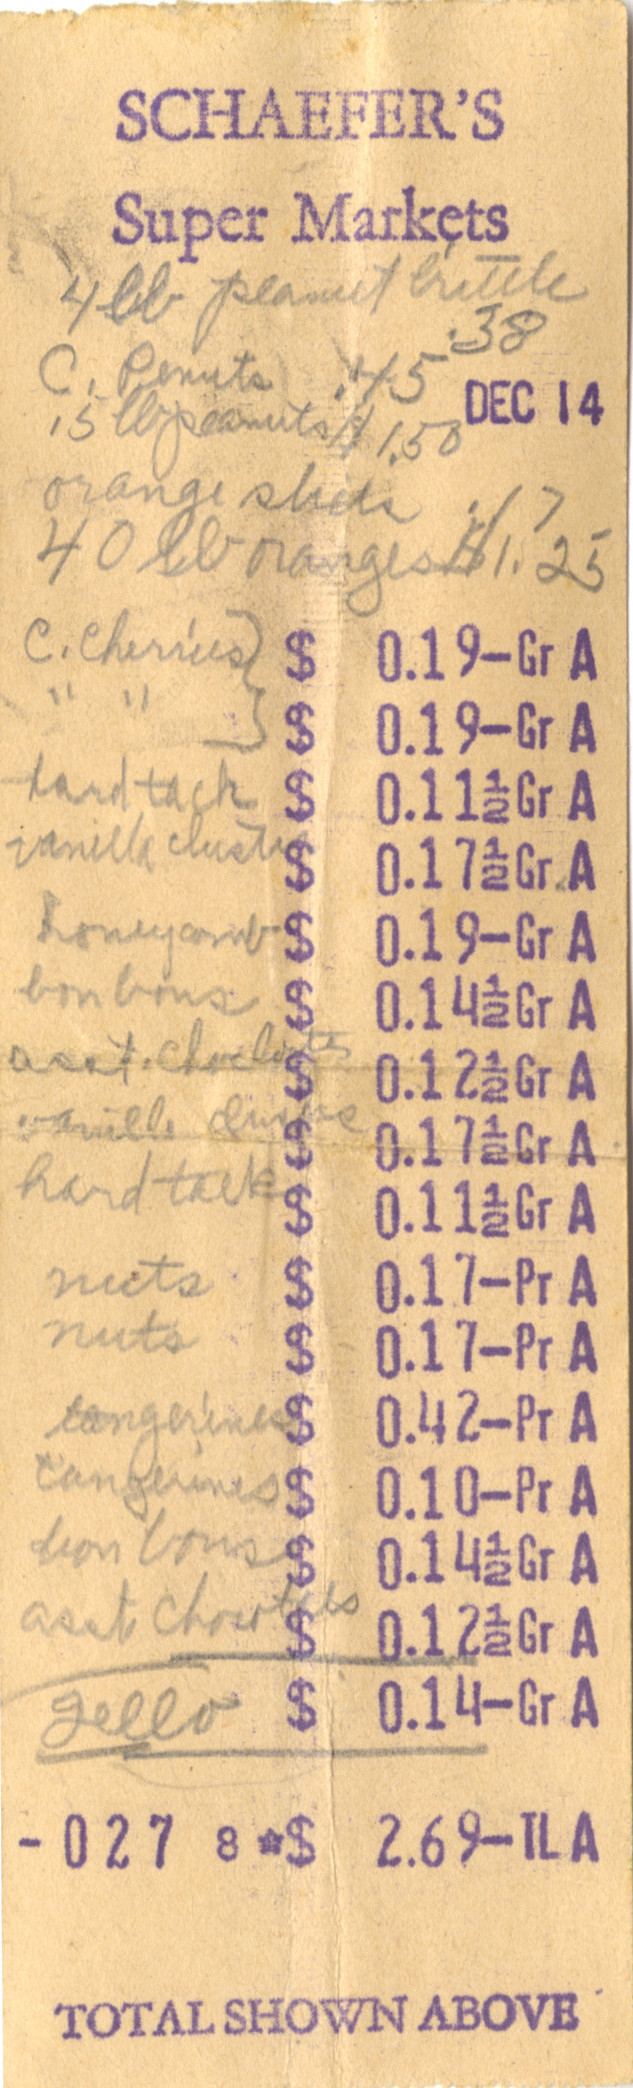 SCHAEFER'S
Super Markets
4 lb peanut brittle
.38
C. Penuts .45
DEC 14
15 lb peanuts $1.50
orange slices .17
40 lb oranges $1.25
C. Cherries } $ 0.19-Gr A
" " } $ 0.19-Gr A
hard tack $ 0.11½Gr A
vanilla clusters $ 0.17½Gr A
honeycomb $ 0.19-Gr A
bon bons $ 0.14½Gr A
asst. $ 0.12½Gr A
vanilla $ 0.17½Gr A
hard tack $ 0.11½Gr A
nuts $ 0.17-Pr A
nuts $ 0.17-Pr A
tangerines $ 0.42-Pr A
tangerines $ 0.10-Pr A
bon bons $ 0.14½Gr A
asst $ 0.12½Gr A
Jello $ 0.14-Gr A
-027 8 *$ 2.69-TL A
TOTAL SHOWN ABOVE